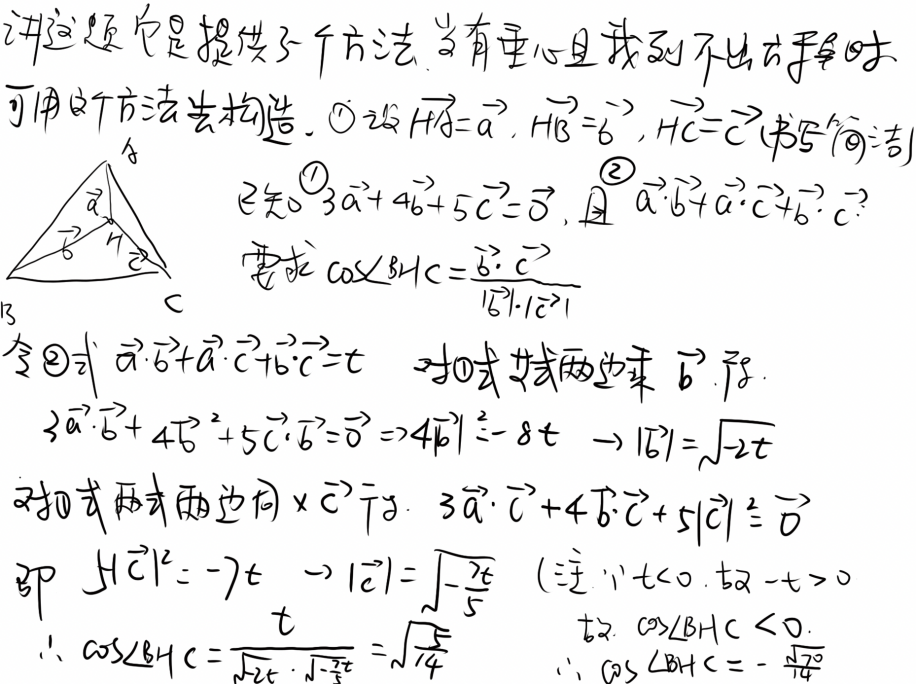 讲这题它是提供了一个方法,当有垂心且找到不出古手拿时
可用这个方法去构造. ①设 $\vec{HA}=\vec{a}$, $\vec{HB}=\vec{b}$, $\vec{HC}=\vec{c}$ (书写简洁)
A
已知 ① $3\vec{a}+4\vec{b}+5\vec{c}=\vec{0}$, 且 ② $\vec{a}\cdot\vec{b}+\vec{a}\cdot\vec{c}+\vec{b}\cdot\vec{c}$
$\vec{a}$ H $\vec{b}$ $\vec{c}$
要求 $\cos\angle BHC=\frac{\vec{b}\cdot\vec{c}}{|\vec{b}|\cdot|\vec{c}|}$
B C
令②式 $\vec{a}\cdot\vec{b}+\vec{a}\cdot\vec{c}+\vec{b}\cdot\vec{c}=t$ 对①式 式两边乘 $\vec{b}$ 得.
$3\vec{a}\cdot\vec{b}+4\vec{b}^2+5\vec{c}\cdot\vec{b}=\vec{0}$ ⇒ $4|\vec{b}|^2=-8t$ → $|\vec{b}|=\sqrt{-2t}$
对①式两式两边同×$\vec{c}$ 得. $3\vec{a}\cdot\vec{c}+4\vec{b}\cdot\vec{c}+5|\vec{c}|^2=\vec{0}$
即 $5|\vec{c}|^2=-7t$ → $|\vec{c}|=\sqrt{-\frac{7t}{5}}$ (注:∵ t<0. 故 -t>0
故 $\cos\angle BHC<0$.
∴ $\cos\angle BHC=\frac{t}{\sqrt{-2t}\cdot\sqrt{-\frac{7t}{5}}}=\sqrt{\frac{5}{14}}$ ∴ $\cos\angle BHC=-\frac{\sqrt{70}}{14}$